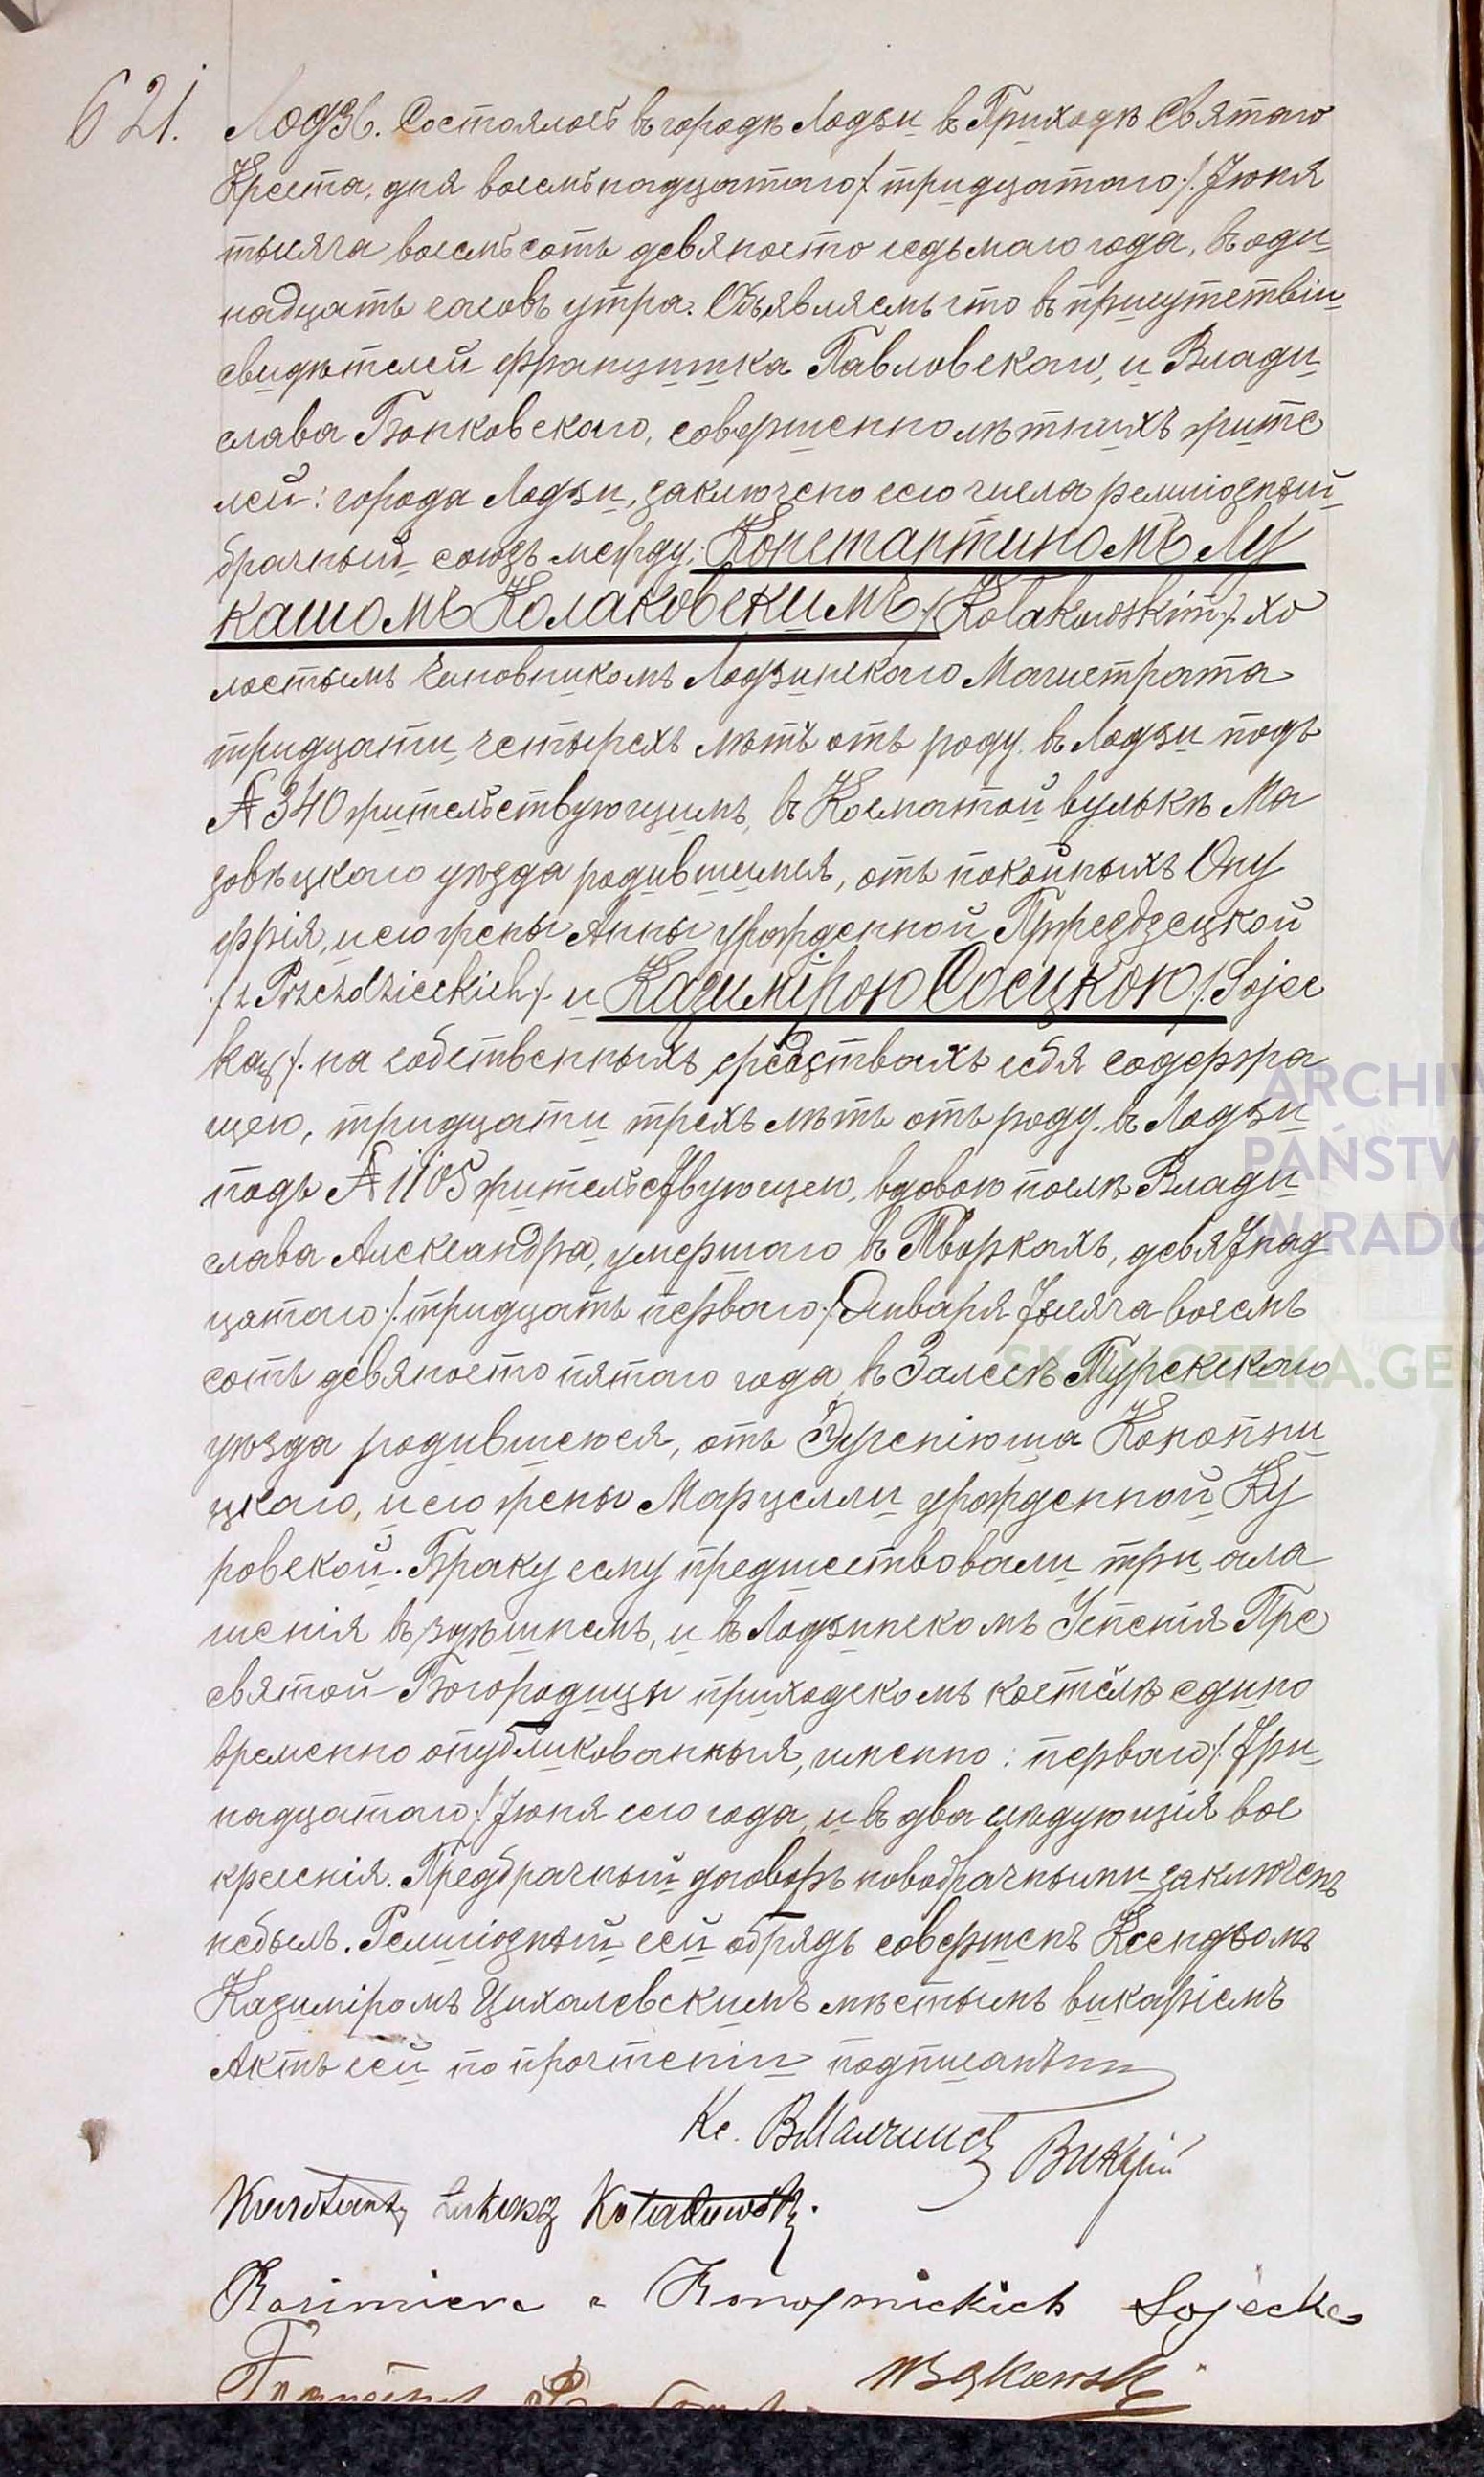 621. Лодзь. Состоялось въ городѣ Лодзи въ Приходѣ Святаго
Креста, дня восемьнадцатаго /: тридцатаго :/ Іюня
тысяча восемьсотъ девяносто седьмаго года, въ оди
надцать часовъ утра. Объявляемъ что въ присутствіи
свидѣтелей Францишка Павловскаго, и Влади
слава Бонковскаго, совершеннолѣтнихъ жите
лей: города Лодзи, заключено сего числа религіозный
брачный союзъ между: Константиномъ Лу
кашомъ Колаковскимъ /: Kołakowskim :/ хо
лостымъ чиновникомъ Лодзинскаго Магистрата
тридцати четырехъ лѣтъ отъ роду, въ Лодзи подъ
№ 340 жительствующимъ, въ Косматой вулькѣ Ма
зовѣцкаго уѣзда родившимся, отъ покойныхъ Ону
фрія, и его жены Анны урожденной Пржездзецкой
/: z Przezdzieckich :/ и Казимірою Соецкою /: Sojec
ką :/ на собственныхъ средствахъ себя содержа
щею, тридцати трехъ лѣтъ отъ роду, въ Лодзи
подъ № 1105 жительствующею, вдовою послѣ Влади
слава Александра, умершаго въ Творкахъ, девятнад
цатаго /: тридцать перваго :/ Января тысяча восемь
сотъ девяносто пятаго года, въ Залесѣ Турекскаго
уѣзда родившеюся, отъ Эугеніюша Конопни
цкаго, и его жены Марцелли урожденной Ку
ровской. Браку сему предшествовали три огла
шенія въ здѣшнемъ, и въ Лодзинскомъ Успенія Пре
святой Богородицы приходскомъ костёлѣ едино
временно опубликованныя, именно: перваго /: три
надцатаго :/ Іюня сего года, и въ два слѣдующія вос
кресенія. Предбрачный договоръ новобрачными заключенъ
небылъ. Религіозный сей обрядъ совершенъ Ксендзомъ
Казиміромъ Цихалевскимъ мѣстымъ викаріемъ
Актъ сей по прочтеніи подписанъ
Кс. Викрій
Konstanty Łukasz Kołakowski.
Kazimiera z Konopnickich Sojecka
WBąkowski
Franciszek
ARCHIW
PAŃSTW
W RADO
SKANOTEKA.GE